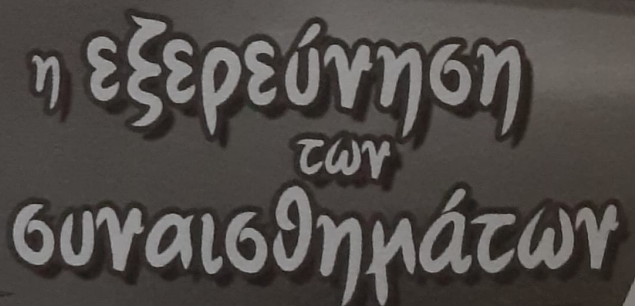 η εξερεύνηση
των
συναισθημάτων